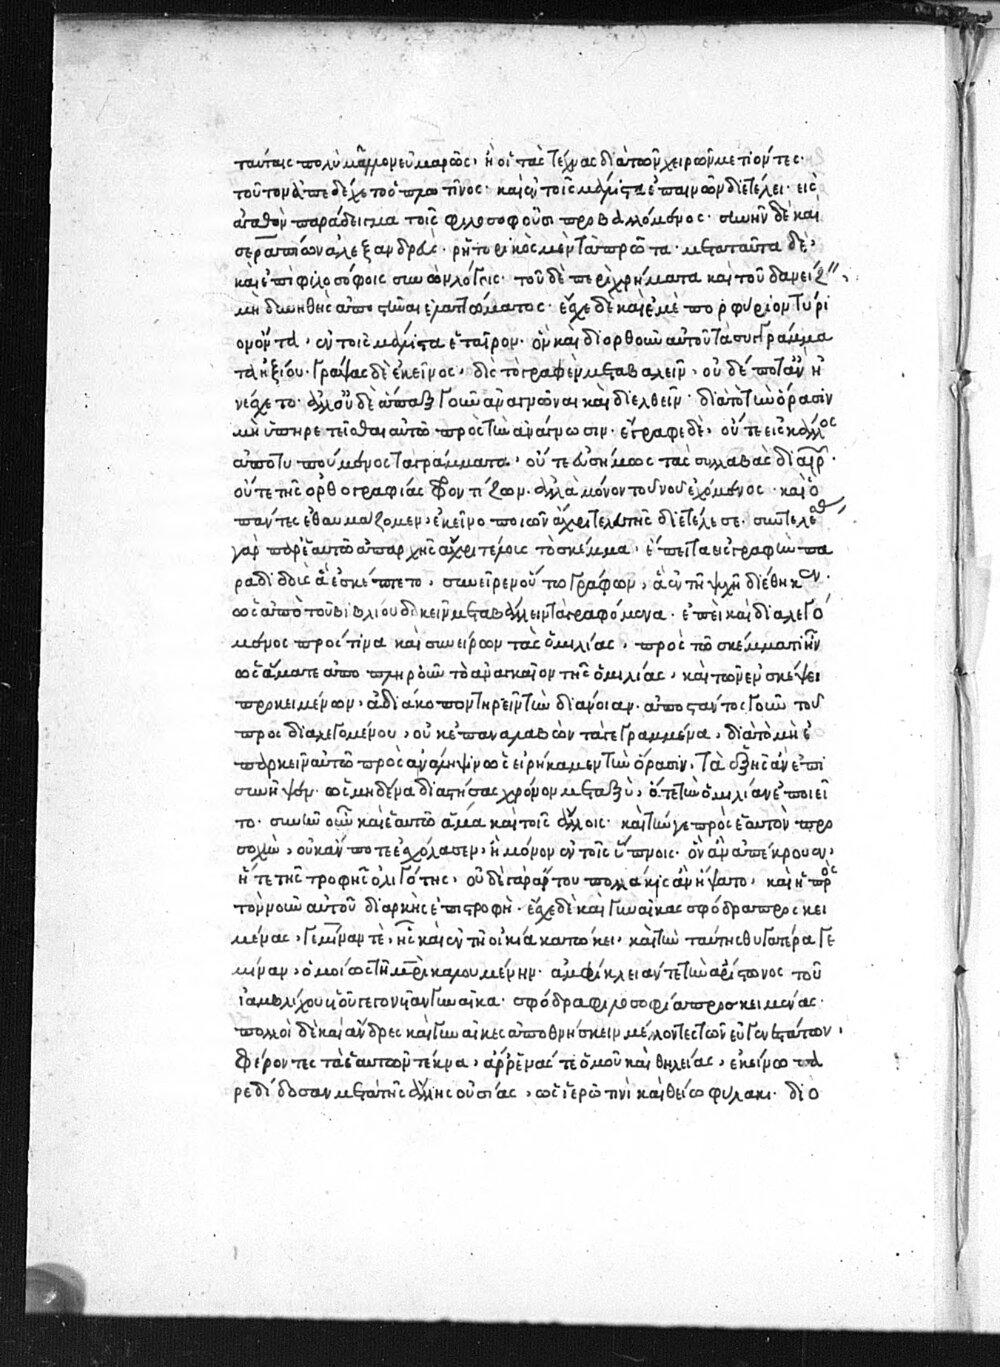 ταύταις πολὺ μᾶλλον εὐμαρῶς, ἢ οἱ τὰς τέχνας διὰ τῶν χειρῶν μετιόντες·
τοῦτον ἀπεδέχετο ὁ πλωτῖνος· καὶ ἐν τοῖς μάλιστα ἐπαινῶν διετέλει· εἰς
ἀγαθὸν παράδειγμα τοῖς φιλοσοφοῦσι προβαλλόμενος· συνῆν δὲ καὶ
σεραπίων ἀλεξανδρεὺς· ῥητορικὸς μὲν τὰ πρῶτα· μετὰ ταῦτα δὲ,
καὶ ἐπὶ φιλοσόφοις συνὼν λόγοις· τοῦ δὲ περὶ χρήματα καὶ τοῦ δανείζ
μὴ δυνηθεὶς ἀποστῆναι ἐλαττώματος· ἔσχε δὲ καὶ ἐμὲ πορφύριον τύρι
ον ὄντα, ἐν τοῖς μάλιστα ἑταῖρον· ὃν καὶ διορθοῦν αὐτοῦ τὰ συγγράμμα
τα ἠξίου· γράψας δὲ ἐκεῖνος, δὶς τὸ γραφὲν μεταβαλεῖν, οὐδέποτ' ἂν ἠ
νέσχετο· ἀλλ' οὐδὲ ἅπαξ γοῦν ἀναγνῶναι καὶ διελθεῖν· διὰ τὸ τὴν ὅρασιν
μὴ ὑπηρετεῖσθαι αὐτῷ πρὸς τὴν ἀνάγνωσιν· ἔγραφε δὲ, οὔτε εἰς κάλλος
ἀποτυπούμενος τὰ γράμματα, οὔτε εὐσήμως τὰς συλλαβὰς διαιρ·
οὔτε τῆς ὀρθογραφίας φροντίζων· ἀλλὰ μόνον τοῦ νοῦ ἐχόμενος· καὶ ὃ
πάντες ἐθαυμάζομεν, ἐκεῖνο ποιῶν ἄχρι τελευτῆς διετέλεσε· συντελέσ
γὰρ παρ' ἑαυτῷ ἀπ' ἀρχῆς ἄχρι τέλους τὸ σκέμμα, ἔπειτα εἰς γραφὴν πα
ραδιδοὺς ἃ ἐσκέπτετο, συνεῖρεν οὕτω γράφων, ἃ ἐν τῇ ψυχῇ διέθηκεν·
ὡς ἀπὸ τοῦ βιβλίου δοκεῖν μεταβάλλειν τὰ γραφόμενα· ἐπεὶ καὶ διαλεγό
μενος πρός τινα καὶ συνείρων τὰς ὁμιλίας, πρὸς τῷ σκέμματι ἦν
ὡς ἅμα τε ἀποπληροῦν τὸ ἀναγκαῖον τῆς ὁμιλίας, καὶ τῶν ἐν σκέψει
προκειμένων, ἀδιάκοπον τηρεῖν τὴν διάνοιαν· ἀποστάντος γοῦν τοῦ
προσδιαλεγομένου, οὐκ ἐπαναλαβὼν τὰ γεγραμμένα, διὰ τὸ μὴ ἐ
παρκεῖν αὐτῷ πρὸς ἀνάληψιν ὡς εἰρήκαμεν τὴν ὅρασιν, τὰ ἑξῆς ἂν ἐπι
συνῆψεν· ὡς μηδένα διαστήσας χρόνον μεταξὺ, ὅτε τὴν ὁμιλίαν ἐποιεῖ
το· συνῆν οὖν καὶ ἑαυτῷ ἅμα καὶ τοῖς ἄλλοις· καὶ τήν γε πρὸς ἑαυτὸν προ
σοχὴν, οὐκ ἄν ποτε ἐχάλασεν, ἢ μόνον ἐν τοῖς ὕπνοις· ὃν ἂν ἀπέκρουεν,
ἥ τε τῆς τροφῆς ὀλιγότης, οὐδὲ γὰρ ἄρτου πολλάκις ἂν ἥψατο, καὶ ἡ πρὸς
τὸν νοῦν αὐτοῦ διαρκὴς ἐπιστροφή· ἔσχε δὲ καὶ γυναῖκας σφόδρα προσκει
μένας, γεμίναν τὲ, ἧς καὶ ἐν τῇ οἰκίᾳ κατῴκει, καὶ τὴν ταύτης θυγατέρα γε
μίναν, ὁμοίως τῇ μρὶ καλουμένην· ἀμφίκλειάν τε τὴν ἀρίστωνος τοῦ
ἰαμβλίχου υἱοῦ γεγονυῖαν γυναῖκα· σφόδρα φιλοσοφίᾳ προσκειμένας·
πολλοὶ δὲ καὶ ἄνδρες καὶ γυναῖκες ἀποθνήσκειν μέλλοντες τῶν εὐγενεστάτων,
φέροντες τὰ ἑαυτῶν τέκνα, ἄρρενάς τε ὁμοῦ καὶ θηλείας, ἐκείνῳ πα
ρεδίδοσαν μετὰ τῆς ἄλλης οὐσίας, ὡς ἱερῷ τινὶ καὶ θείῳ φύλακι· διὸ